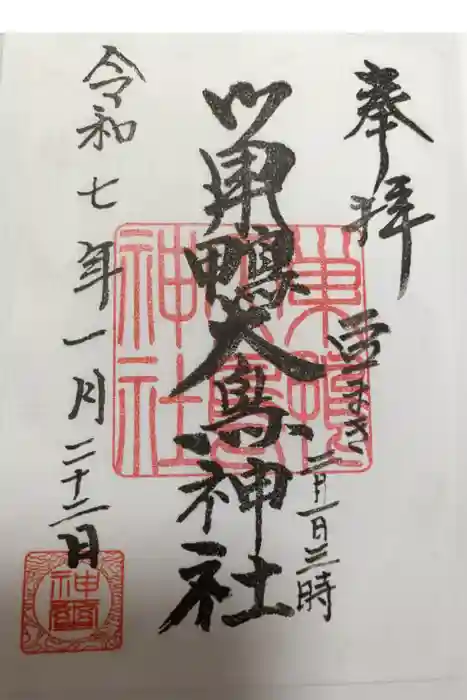 奉拝
豆まき
二月一日三時
巣鴨大鳥神社
巣鴨大鳥神社
令和七年一月二十二日